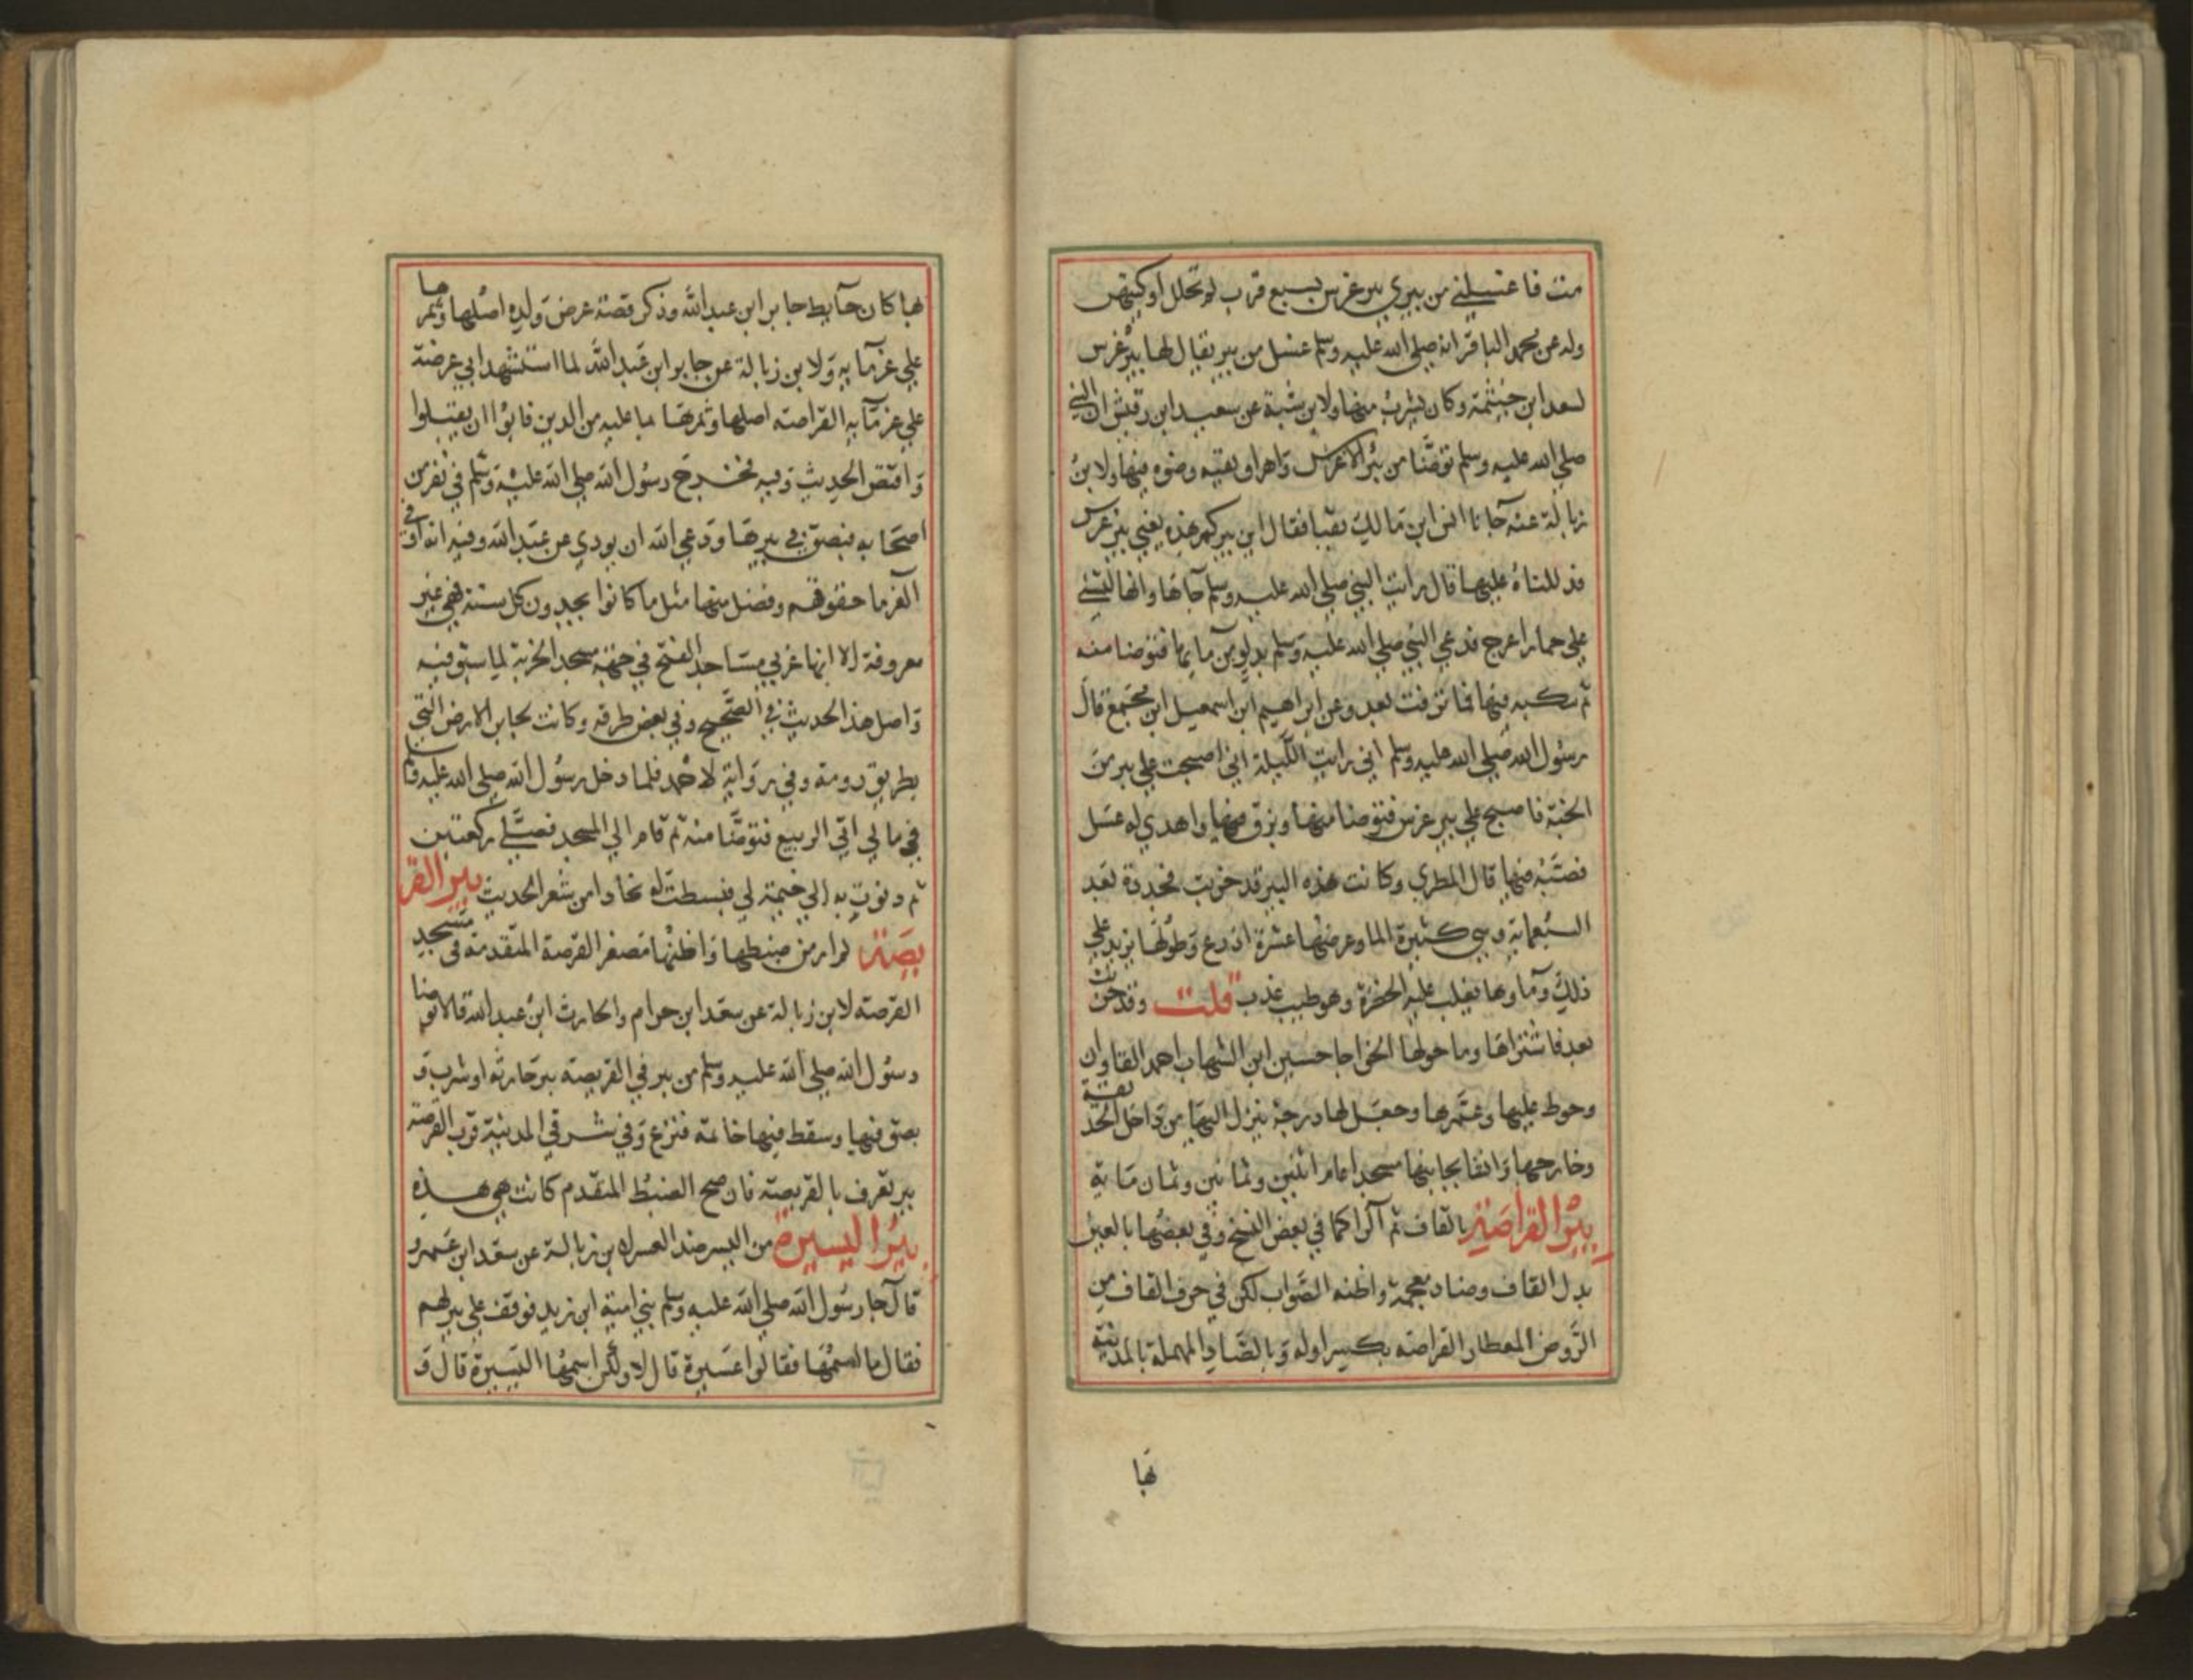 مت فاغسلني من بيري بير غرس بسبع قرب لم تحلل اوكيتهن
وله عن محمد الباقر انه صلي الله عليه وسلم غسل من بير يقال لها بير غرس
لسعد ابن خيثمة وكان يشرب منها ولابن شبة عن سعيد ابن رقيش ان النبي
صلي الله عليه وسلم توضّا من بئر الاغرس واهراق بقيه وضوه فيها ولابن
زبالة عنه جانا انس ابن مالك بقبا فقال اين بيركم هذه يعني بير غرس
فدللناه عليها قال رايت النبي صلي الله عليه وسلم جاها وانها لتسني
علي حمار اعرج فدعي النبي صلي الله عليه وسلم بدلو من مايها فتوضا منه
ثم سكبه فيها فما نزفت بعد وعن ابراهيم ابن اسمعيل ابن مجمع قال
رسول الله صلي الله عليه وسلم اني رايت الليلة اني اصبحت علي بير من
الجنة فاصبح علي بير غرس فتوضا منها وبزق فيها واهدي له عسل
فصبّه فيها قال المطري وكانت هذه البير قد خربت فجددة بعد
السبعماية وهي كثيرة الما وعرضها عشرة اذرع وطولها يزيد علي
ذلك وماوها يغلب عليه الخضرة وهو طيب عذب قلت وقد خربت
بعد فاشتراها وما حولها الخواجا حسين ابن الشهاب احمد القاوان
وحوط عليها وعمّرها وجعل لها درجة ينزل اليها من داخل الحديقة
وخارجها وانشا بجانبها مسجدا عام اثنين وثمانين وثمان ماية
بير القراصة بالقاف ثم الرا كما في بعض النسخ وفي بعضها بالعين
بدل القاف وضاد معجمة واظنه الصواب لكن في حرف القاف من
الروض المعطار القراصه بكسر اوله وبالصاد المهملة بالمدينة
بها
بها كان حايط جابر ابن عبد الله وذكر قصة عرض ولده اصلها وثمرها
علي غرمايه ولابن زبالة عن جابر ابن عبد الله لما استشهد ابي عرضة
علي غرمايه القراصه اصلها وثمرها بما عليه من الدين فابوا ان يقبلوا
واقتص الحديث وفيه فخرج رسول الله صلي الله عليه وسلم في نفر من
اصحابه فبصق في بيرها ودعي الله ان يودي عن عبد الله وفيه انه اوفي
الغرما حقوقهم وفضل منها مثل ما كانوا يجدون كل سنة فهي غير
معروفة الا انها غربي مساجد الفتح في جهة مسجد الخربة لما سبق فيه
واصل هذا الحديث في الصحيح وفي بعض طرقه وكانت لجابر الارض التي
بطريق رومة وفي رواية لاحمد فلما دخل رسول الله صلي الله عليه وسلم
في مالي اتي الربيع فتوضّا منه ثم قام الي المسجد فصلّي ركعتين
ثم دنوت به الي خيمة لي فبسطت له بجادا من شعر الحديث بير القر
يصة لم ار من ضبطها واظنها مصغر القرصة المتقدمة في مسجد
القرصة لابن زبالة عن سعد ابن حرام والحارث ابن عبد الله قالا توضا
رسول الله صلي الله عليه وسلم من بير في القريصة بير حارثه او شرب و
بصق فيها وسقط فيها خاتمه فنزع وفي شرقي المدينة قرب القرصة
بير تعرف بالقريصة فان صح الضبط المتقدم كانت هي هذه
بير اليسيرة من اليسر ضد العسر لابن زبالة عن سعد ابن عمرو
قال جا رسول الله صلي الله عليه وسلم بني امية ابن زيد فوقف علي بيرلهم
فقال ما اسمها فقالوا عسيرة قال لا ولكن اسمها اليسيرة قال و